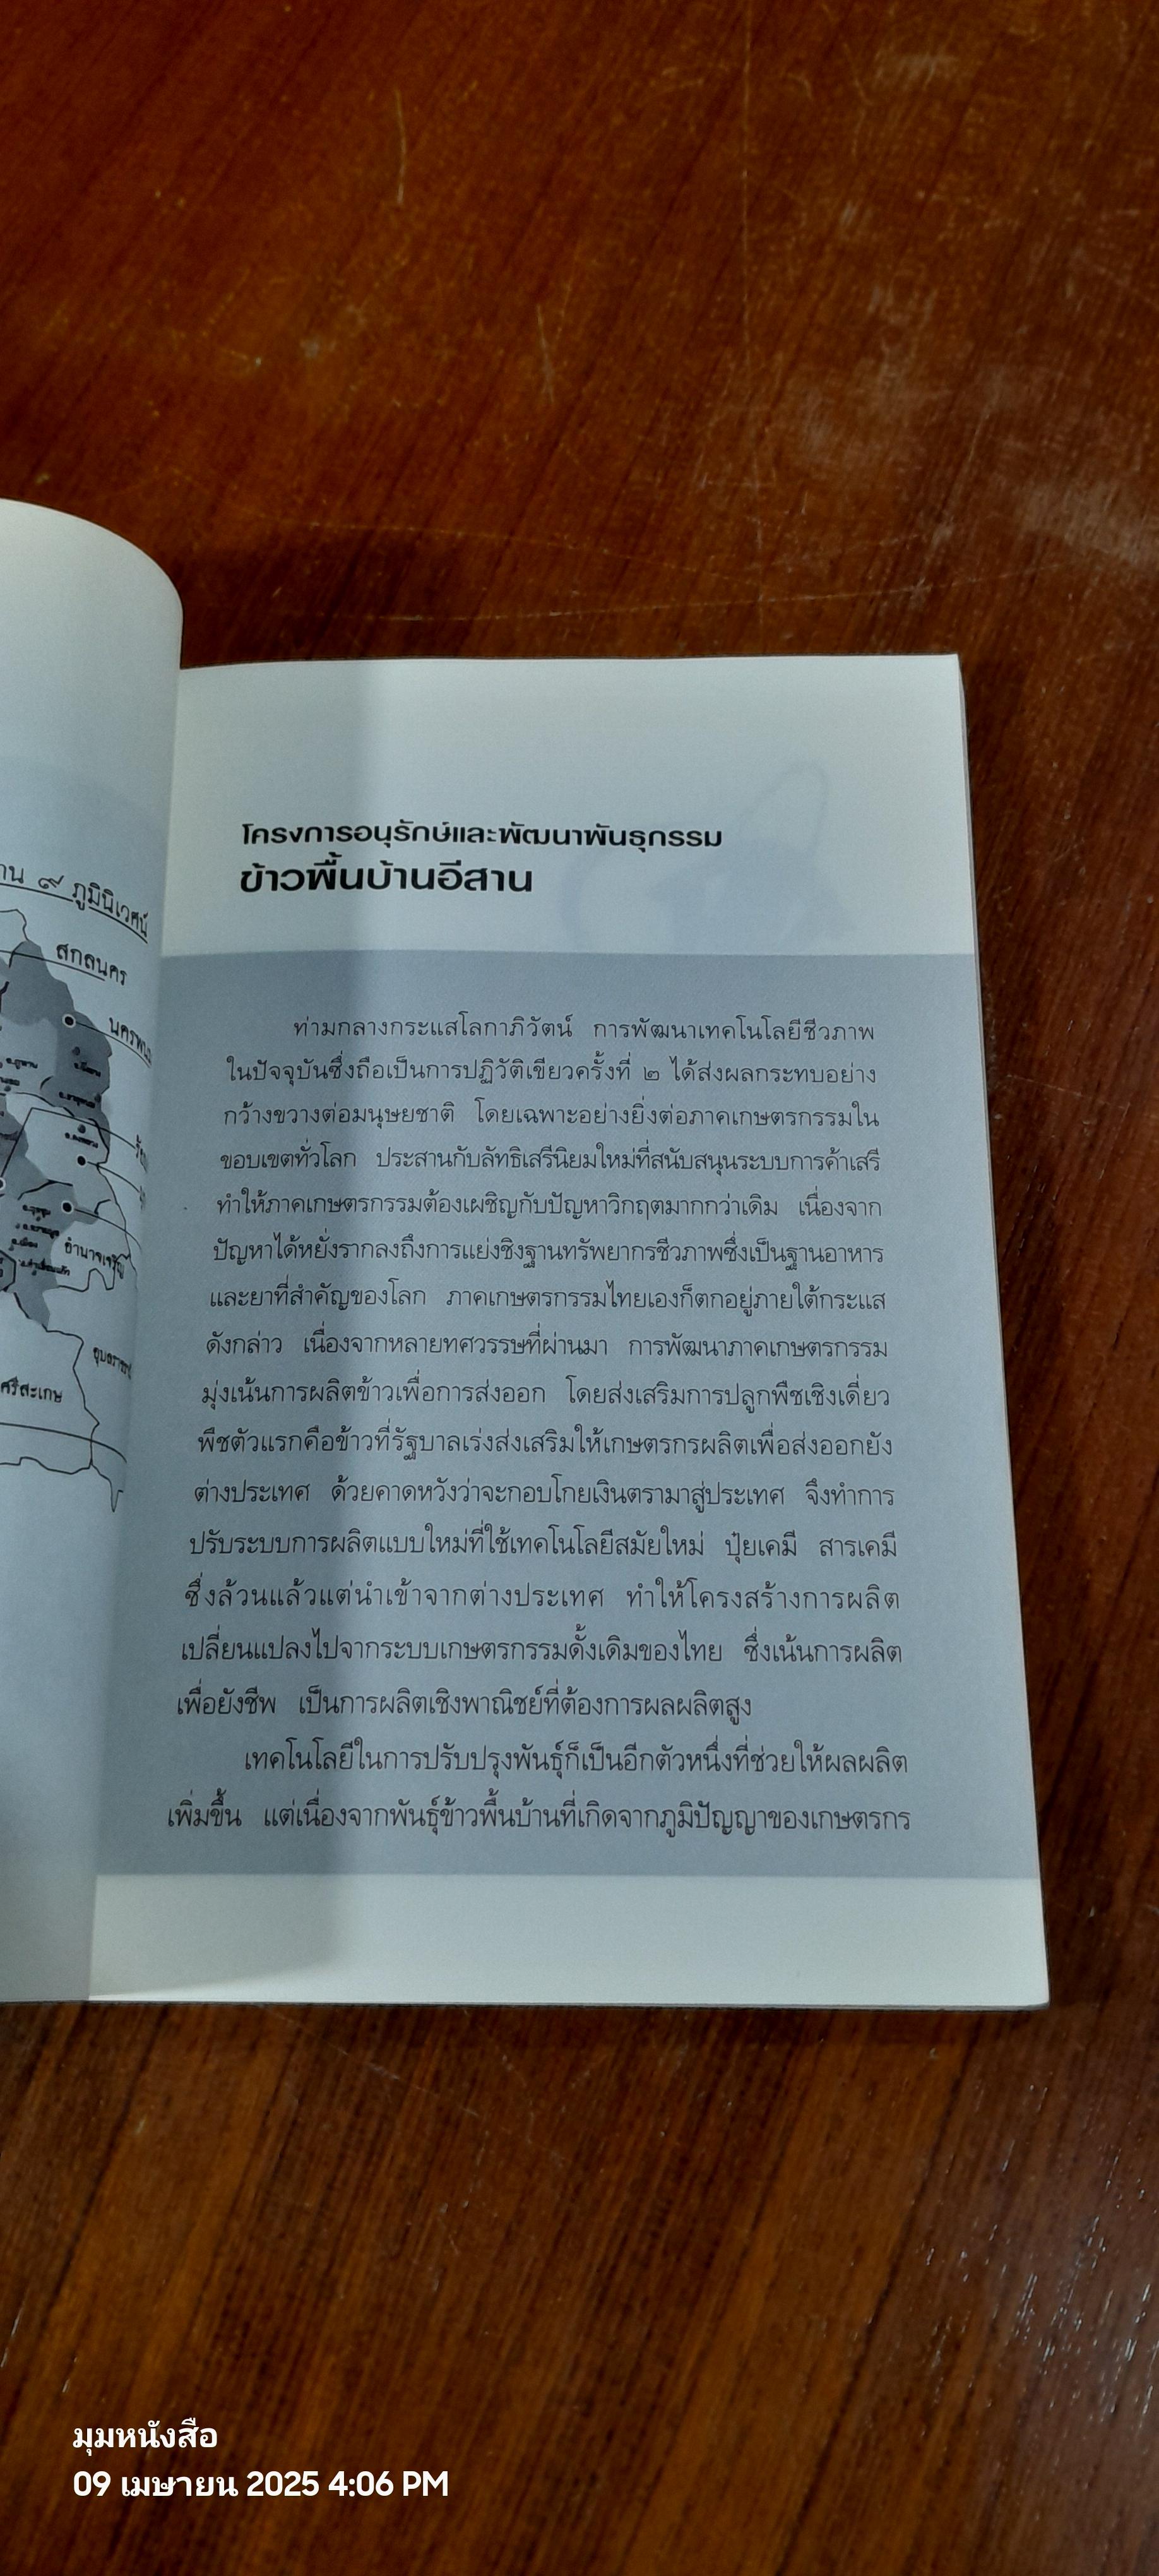 ๙ ภูมินิเวศน์
สกลนคร
อำนาจเจริญ
ศรีสะเกษ
โครงการอนุรักษ์และพัฒนาพันธุกรรม
ข้าวพื้นบ้านอีสาน
ท่ามกลางกระแสโลกาภิวัตน์ การพัฒนาเทคโนโลยีชีวภาพ
ในปัจจุบันซึ่งถือเป็นการปฏิวัติเขียวครั้งที่ ๒ ได้ส่งผลกระทบอย่าง
กว้างขวางต่อมนุษยชาติ โดยเฉพาะอย่างยิ่งต่อภาคเกษตรกรรมใน
ขอบเขตทั่วโลก ประสานกับลัทธิเสรีนิยมใหม่ที่สนับสนุนระบบการค้าเสรี
ทำให้ภาคเกษตรกรรมต้องเผชิญกับปัญหาวิกฤตมากกว่าเดิม เนื่องจาก
ปัญหาได้หยั่งรากลงถึงการแย่งชิงฐานทรัพยากรชีวภาพซึ่งเป็นฐานอาหาร
และยาที่สำคัญของโลก ภาคเกษตรกรรมไทยเองก็ตกอยู่ภายใต้กระแส
ดังกล่าว เนื่องจากหลายทศวรรษที่ผ่านมา การพัฒนาภาคเกษตรกรรม
มุ่งเน้นการผลิตข้าวเพื่อการส่งออก โดยส่งเสริมการปลูกพืชเชิงเดี่ยว
พืชตัวแรกคือข้าวที่รัฐบาลเร่งส่งเสริมให้เกษตรกรผลิตเพื่อส่งออกยัง
ต่างประเทศ ด้วยคาดหวังว่าจะกอบโกยเงินตรามาสู่ประเทศ จึงทำการ
ปรับระบบการผลิตแบบใหม่ที่ใช้เทคโนโลยีสมัยใหม่ ปุ๋ยเคมี สารเคมี
ซึ่งล้วนแล้วแต่นำเข้าจากต่างประเทศ ทำให้โครงสร้างการผลิต
เปลี่ยนแปลงไปจากระบบเกษตรกรรมดั้งเดิมของไทย ซึ่งเน้นการผลิต
เพื่อยังชีพ เป็นการผลิตเชิงพาณิชย์ที่ต้องการผลผลิตสูง
เทคโนโลยีในการปรับปรุงพันธุ์ก็เป็นอีกตัวหนึ่งที่ช่วยให้ผลผลิต
เพิ่มขึ้น แต่เนื่องจากพันธุ์ข้าวพื้นบ้านที่เกิดจากภูมิปัญญาของเกษตรกร
มุมหนังสือ
09 เมษายน 2025 4:06 PM